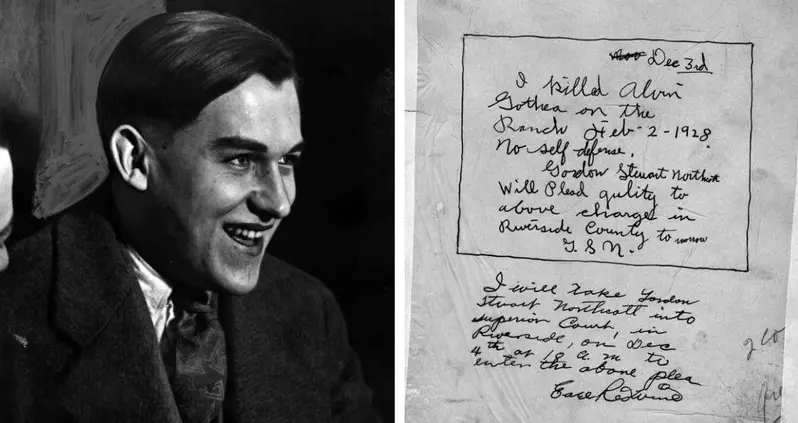 Dec 3rd
I killd Alvin
Gothea on the
Ranch Feb-2-1928.
No self defense.
Gordon Stewart Northcott
Will Plead guilty to
above charge in
Riverside County to morrow
G. S. N.
I will take Gordon
Stuart Northcott into
superior Court, in
Riverside, on Dec
4th at 10 a.m to
enter the above plea
Redwine